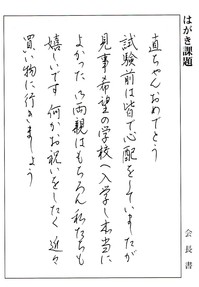 はがき課題
直ちゃんおめでとう
試験前は皆で心配をしていましたが
見事希望の学校へ入学し本当に
よかった 御両親はもちろん私たちも
嬉しいです 何かお祝いをしたく 近々
買い物に行きましょう
会長書